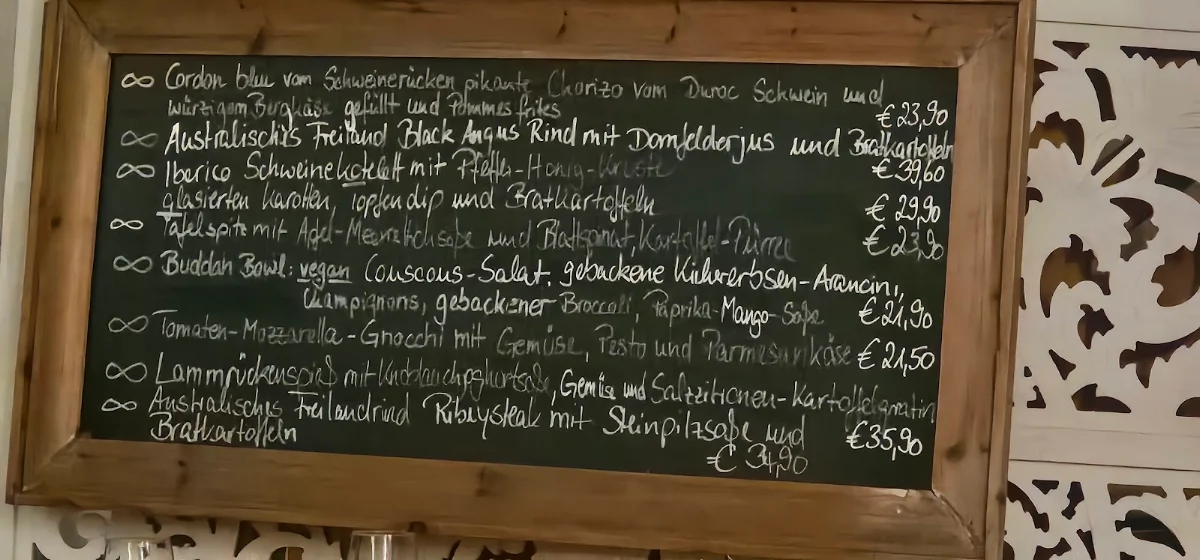 ∞ Cordon bleu vom Schweinerücken pikante Chorizo vom Duroc Schwein und
würzigem Bergkäse gefüllt und Pommes frites €23,90
∞ Australisches Freiland Black Angus Rind mit Dornfelderjus und Bratkartoffeln
€39,60
∞ Iberico Schweinekotelett mit Pfeffer-Honig-Kruste
glasierten Karotten, Topfendip und Bratkartoffeln € 29,90
∞ Tafelspitz mit Apfel-Meerrettichsoße und Blattspinat, Kartoffel-Püree € 23,90
∞ Buddah Bowl: vegan Couscous-Salat, gebackene Kichererbsen-Arancini,
Champignons, gebackener Broccoli, Paprika-Mango-Soße €21,90
∞ Tomaten-Mozzarella-Gnocchi mit Gemüse, Pesto und Parmesankäse €21,50
∞ Lammrückenspieß mit Knoblauchjoghurtsoße, Gemüse und Salzzitronen-Kartoffelgratin
€35,90
∞ Australisches Freilandrind Ribeysteak mit Steinpilzsoße und
Bratkartoffeln € 34,90